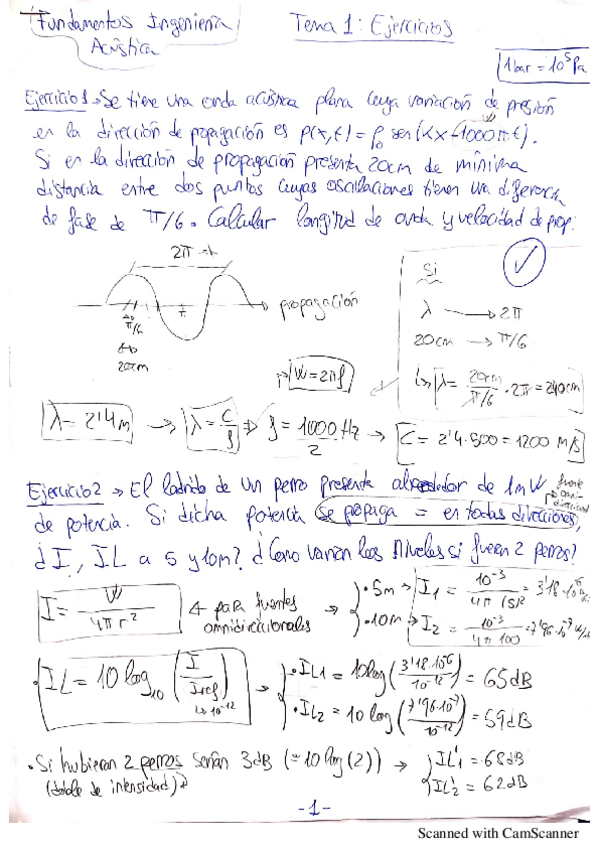 Fundamentos Ingeniería
Acústica
Tema 1: Ejercicios
1 bar = 10⁵ Pa
Ejercicio 1 → Se tiene una onda acústica plana cuya variación de presión
en la dirección de propagación es P(x,t) = P₀ sen(Kx - 1000πt).
Si en la dirección de propagación presenta 20cm de mínima
distancia entre dos puntos cuyas oscilaciones tienen una diferencia
de fase de π/6. Calcular longitud de onda y velocidad de prop.
2π
π/6
20cm
π
propagación
Si
λ → 2π
20cm → π/6
↳ λ = 20cm / π/6 · 2π = 240cm
W = 2πf
λ = 2'4m → λ = c/f ⇒ f = 1000 Hz / 2 → C = 2'4 · 500 = 1200 m/s
Ejercicio 2 → El ladrido de un perro presenta alrededor de 1mW
fuente omnidireccional
de potencia. Si dicha potencia se propaga = en todas direcciones,
¿I, IL a 5 y 10m? ¿Cómo varían los niveles si fueran 2 perros?
I = W / 4πr²
4 para fuentes
omnidireccionales
· 5m → I₁ = 10⁻³ / 4π (5)² = 3'18·10⁻⁶
· 10m → I₂ = 10⁻³ / 4π 100 = 7'96·10⁻⁷ W/m
· IL = 10 log₁₀ (I / Iref)
↳ 10⁻¹²
· IL₁ = 10 log (3'18·10⁻⁶ / 10⁻¹²) = 65 dB
· IL₂ = 10 log (7'96·10⁻⁷ / 10⁻¹²) = 59 dB
· Si hubieran 2 perros serían 3dB (= 10 log (2)) → IL₁' = 68 dB
(doble de intensidad) IL₂' = 62 dB
-1-
Scanned with CamScanner